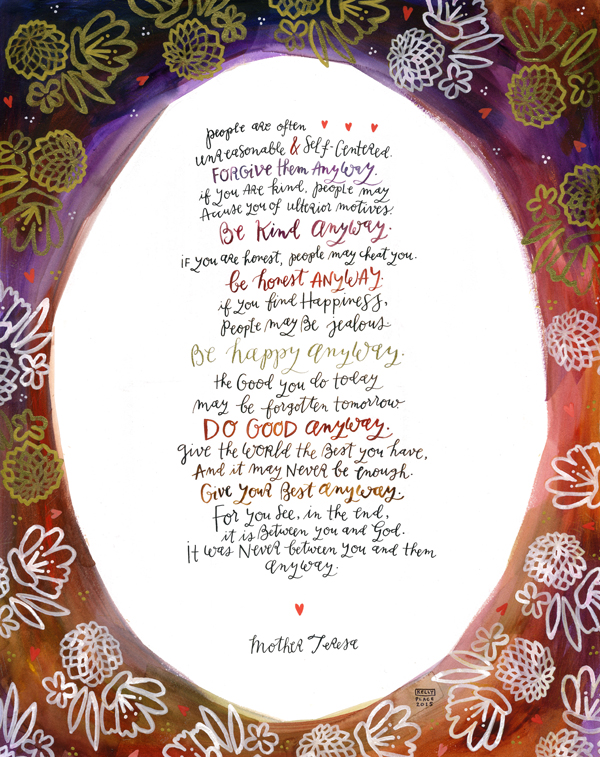 people are often
unreasonable & Self-Centered.
FORGIVE them Anyway.
if you are kind, people may
Accuse you of ulterior motives.
Be Kind Anyway.
if you are honest, people may cheat you.
be honest ANYWAY.
if you find Happiness,
People may Be jealous
Be happy anyway.
the Good you do today
may be forgotten tomorrow
DO GOOD anyway.
give the World the Best you have,
And it may Never be enough.
Give your Best anyway.
For you See, in the end,
it is Between you and God.
it was Never between you and them
anyway.
Mother Teresa
KELLY
PLACE
2015